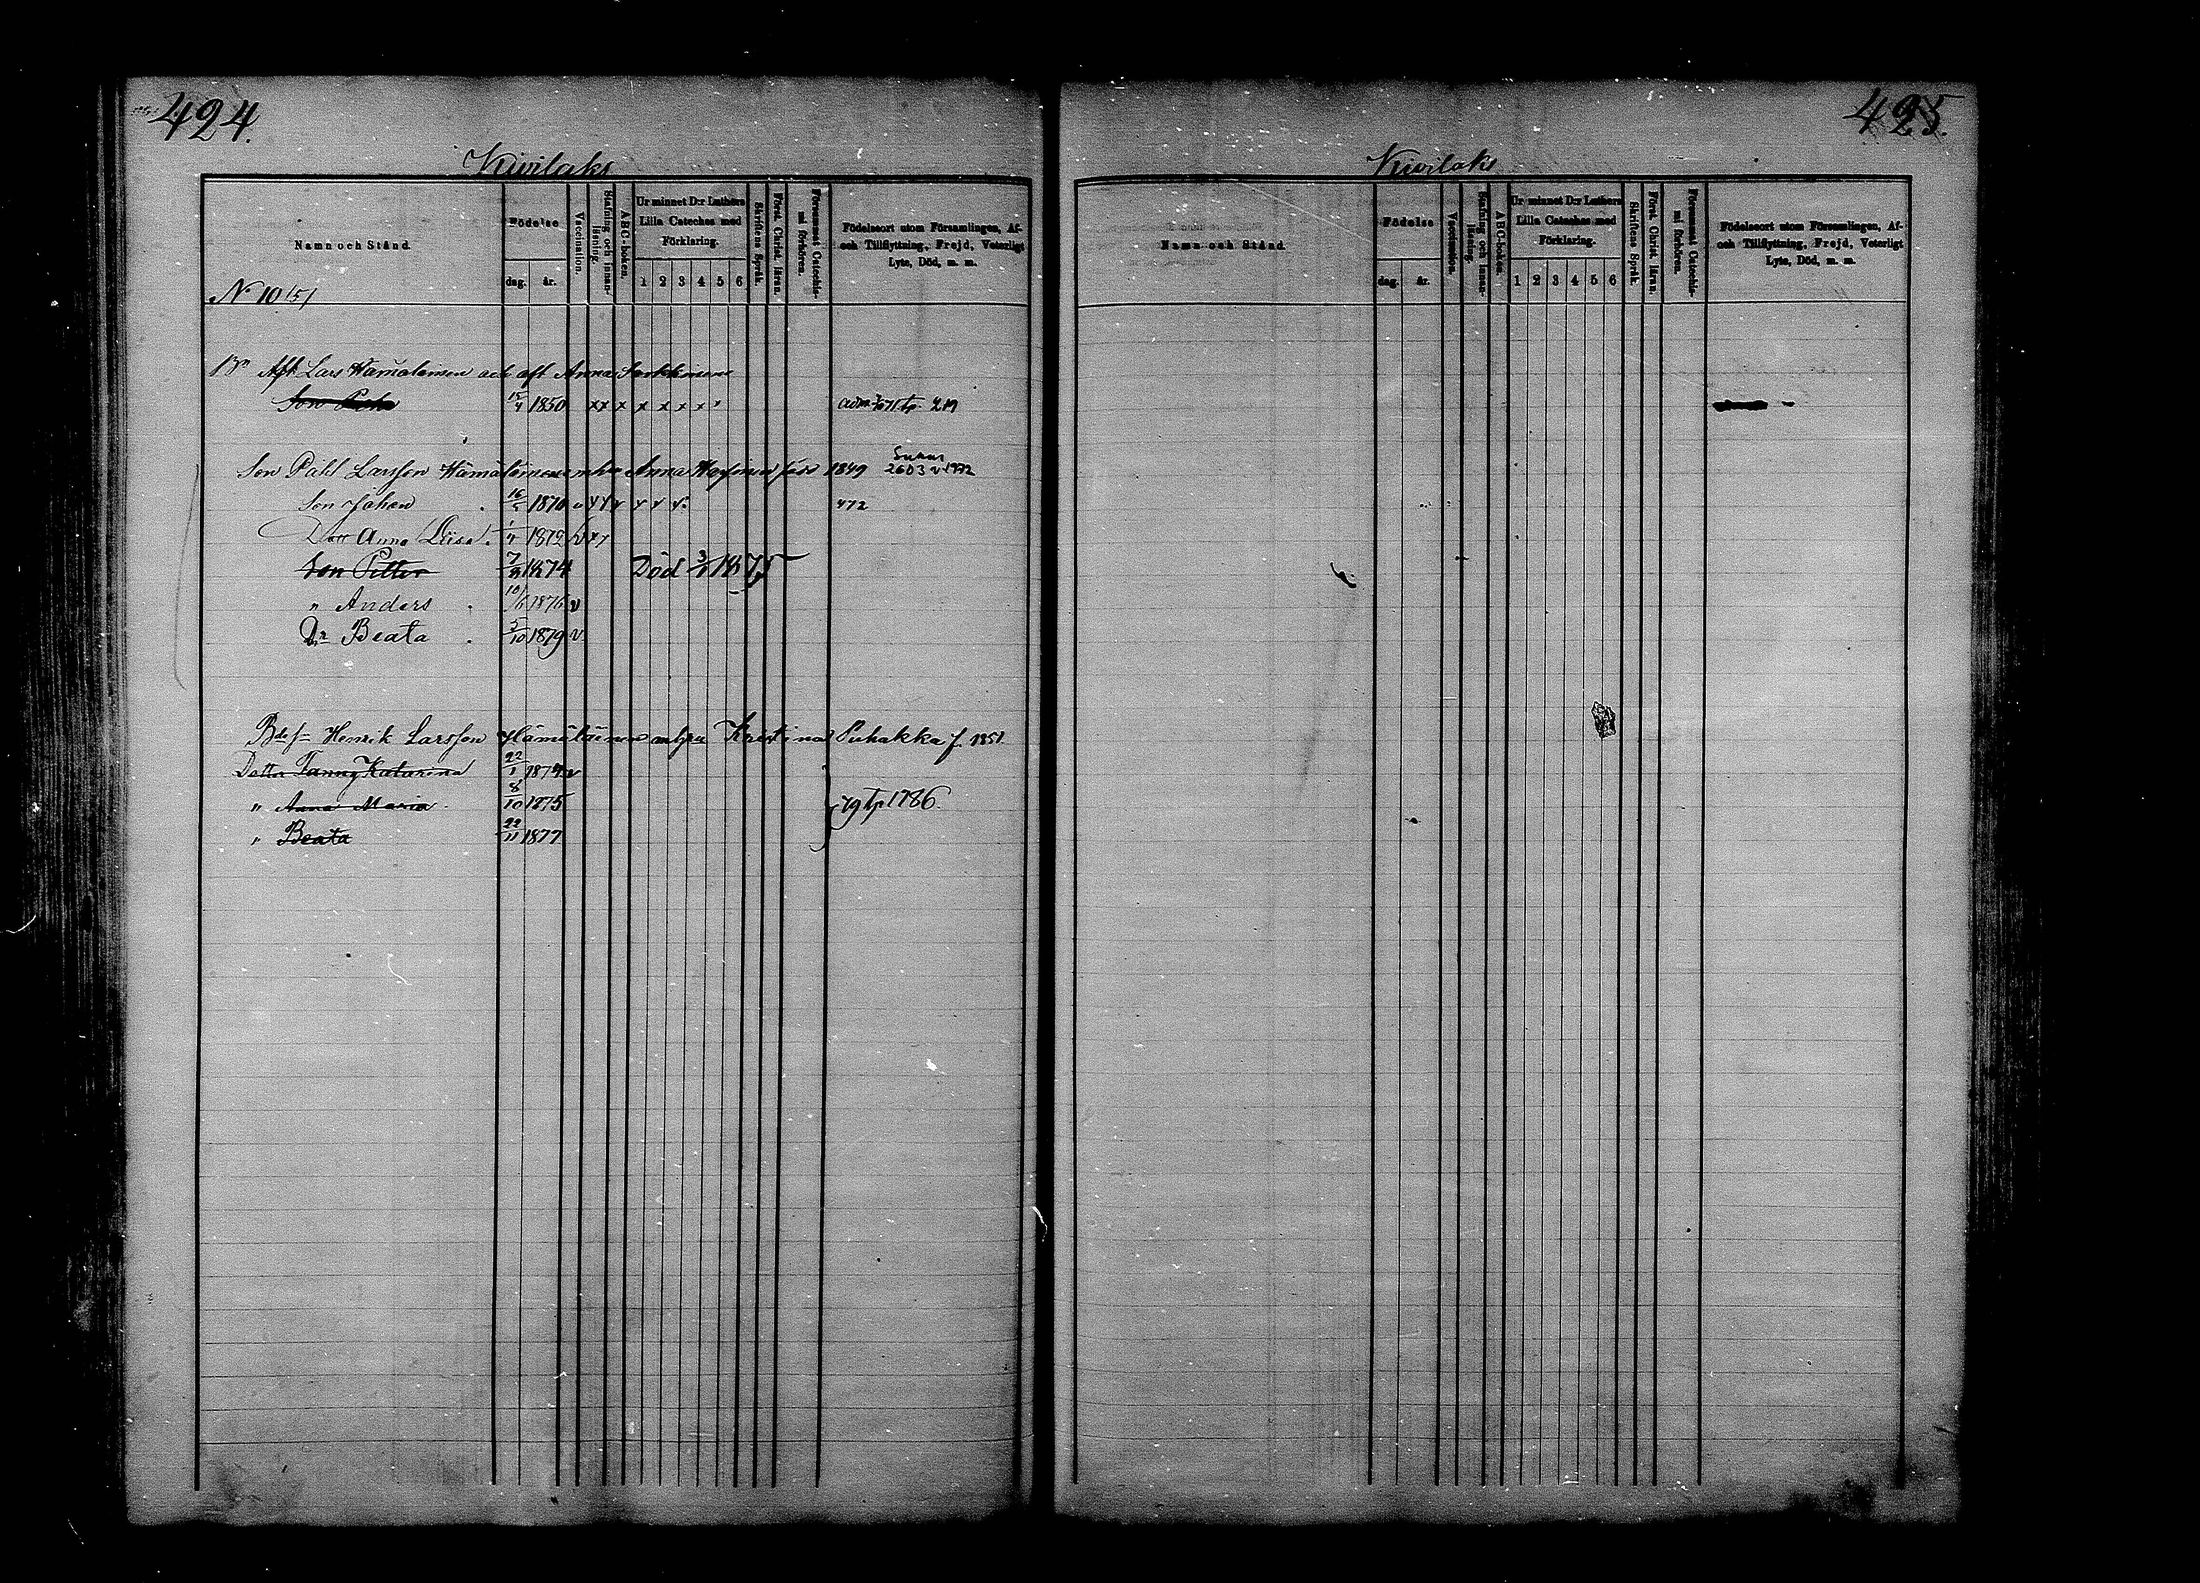 424.
Kivilaks
Namn och Stånd.
Födelse
dag. år.
Vaccination.
Stafning och innanläsning.
ABC-boken.
Ur minnet D:r Luthers Lilla Cateches med Förklaring.
1 2 3 4 5 6
Skriftens Språk.
Först. Christ. läran.
Försummat Catechismi förhören.
Födelseort utom Församlingen, Af- och Tillflyttning, Frejd, Veterligt Lyte, Död, m. m.
N 10 /5/
Afl. Lars Hämäläinen och afl Anna
Son 15/4 1850 x x x x x x x tp. 219
Son Påhl Larsson Hämäläinen mhu Anna född 1849 2603
Son Johan 16/5 1870 v x x x x x x 472
Dott Anna Liisa 1872 v x
Son Petter 1874 Död 1875
" Anders 10/6 1876 v
Dr Beata 5/10 1879 v
Henrik Larsson Hämäläinen m hu Kristina Puhakka f. 1851
Dotter Fanny Katarina 22/1 1874 v
" Anna Maria 8/10 1875 79 tp 1786.
" Beata 22/11 1877
425.
Kivilaks
Namn och Stånd.
Födelse
dag. år.
Vaccination.
Stafning och innanläsning.
ABC-boken.
Ur minnet D:r Luthers Lilla Cateches med Förklaring.
1 2 3 4 5 6
Skriftens Språk.
Först. Christ. läran.
Försummat Catechismi förhören.
Födelseort utom Församlingen, Af- och Tillflyttning, Frejd, Veterligt Lyte, Död, m. m.